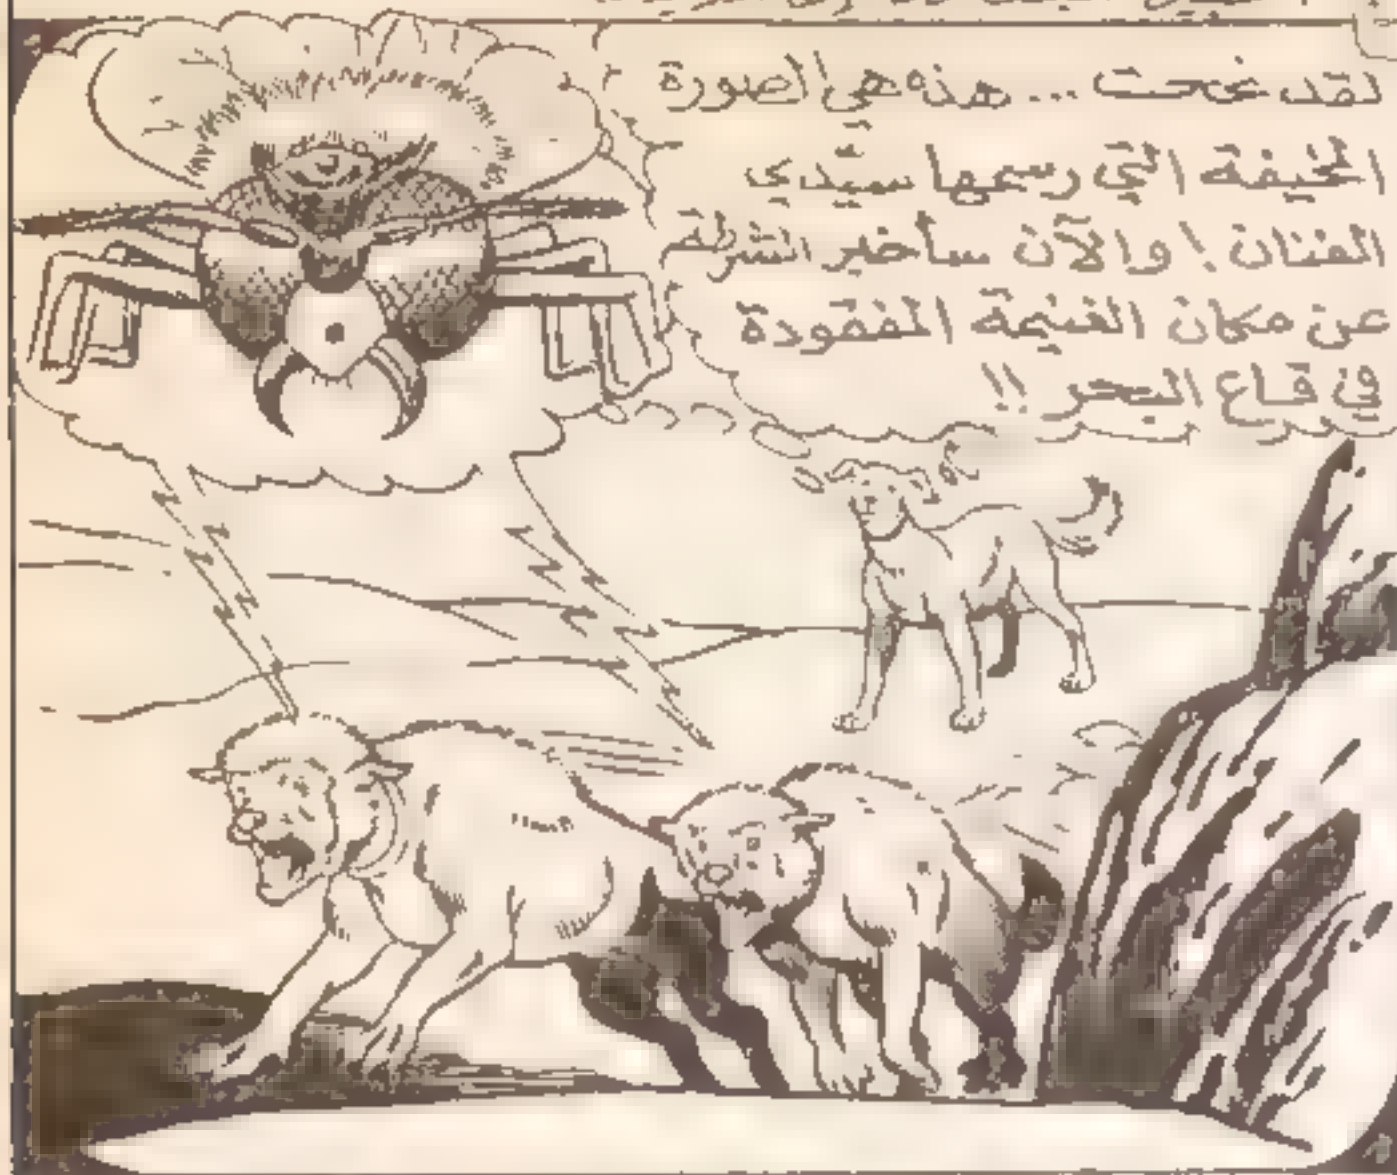 لقد نجحت ... هذه هي الصورة
المخيفة التي رسمها سيّدي
الفنان ! والآن سأخبر الشرطة
عن مكان الغنيمة المفقودة
في قاع البحر !!